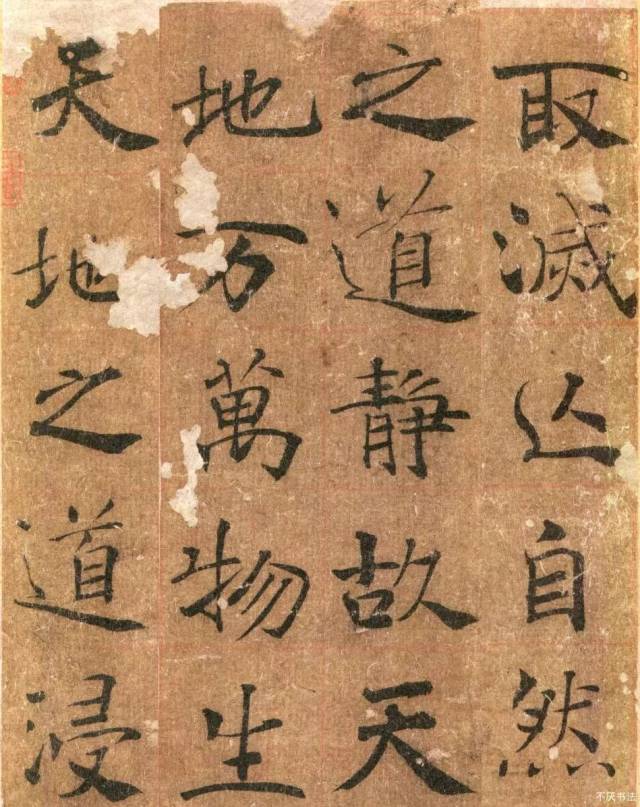 取滅亾自然
之道靜故天
地万萬物生
天地之道浸
不厌书法